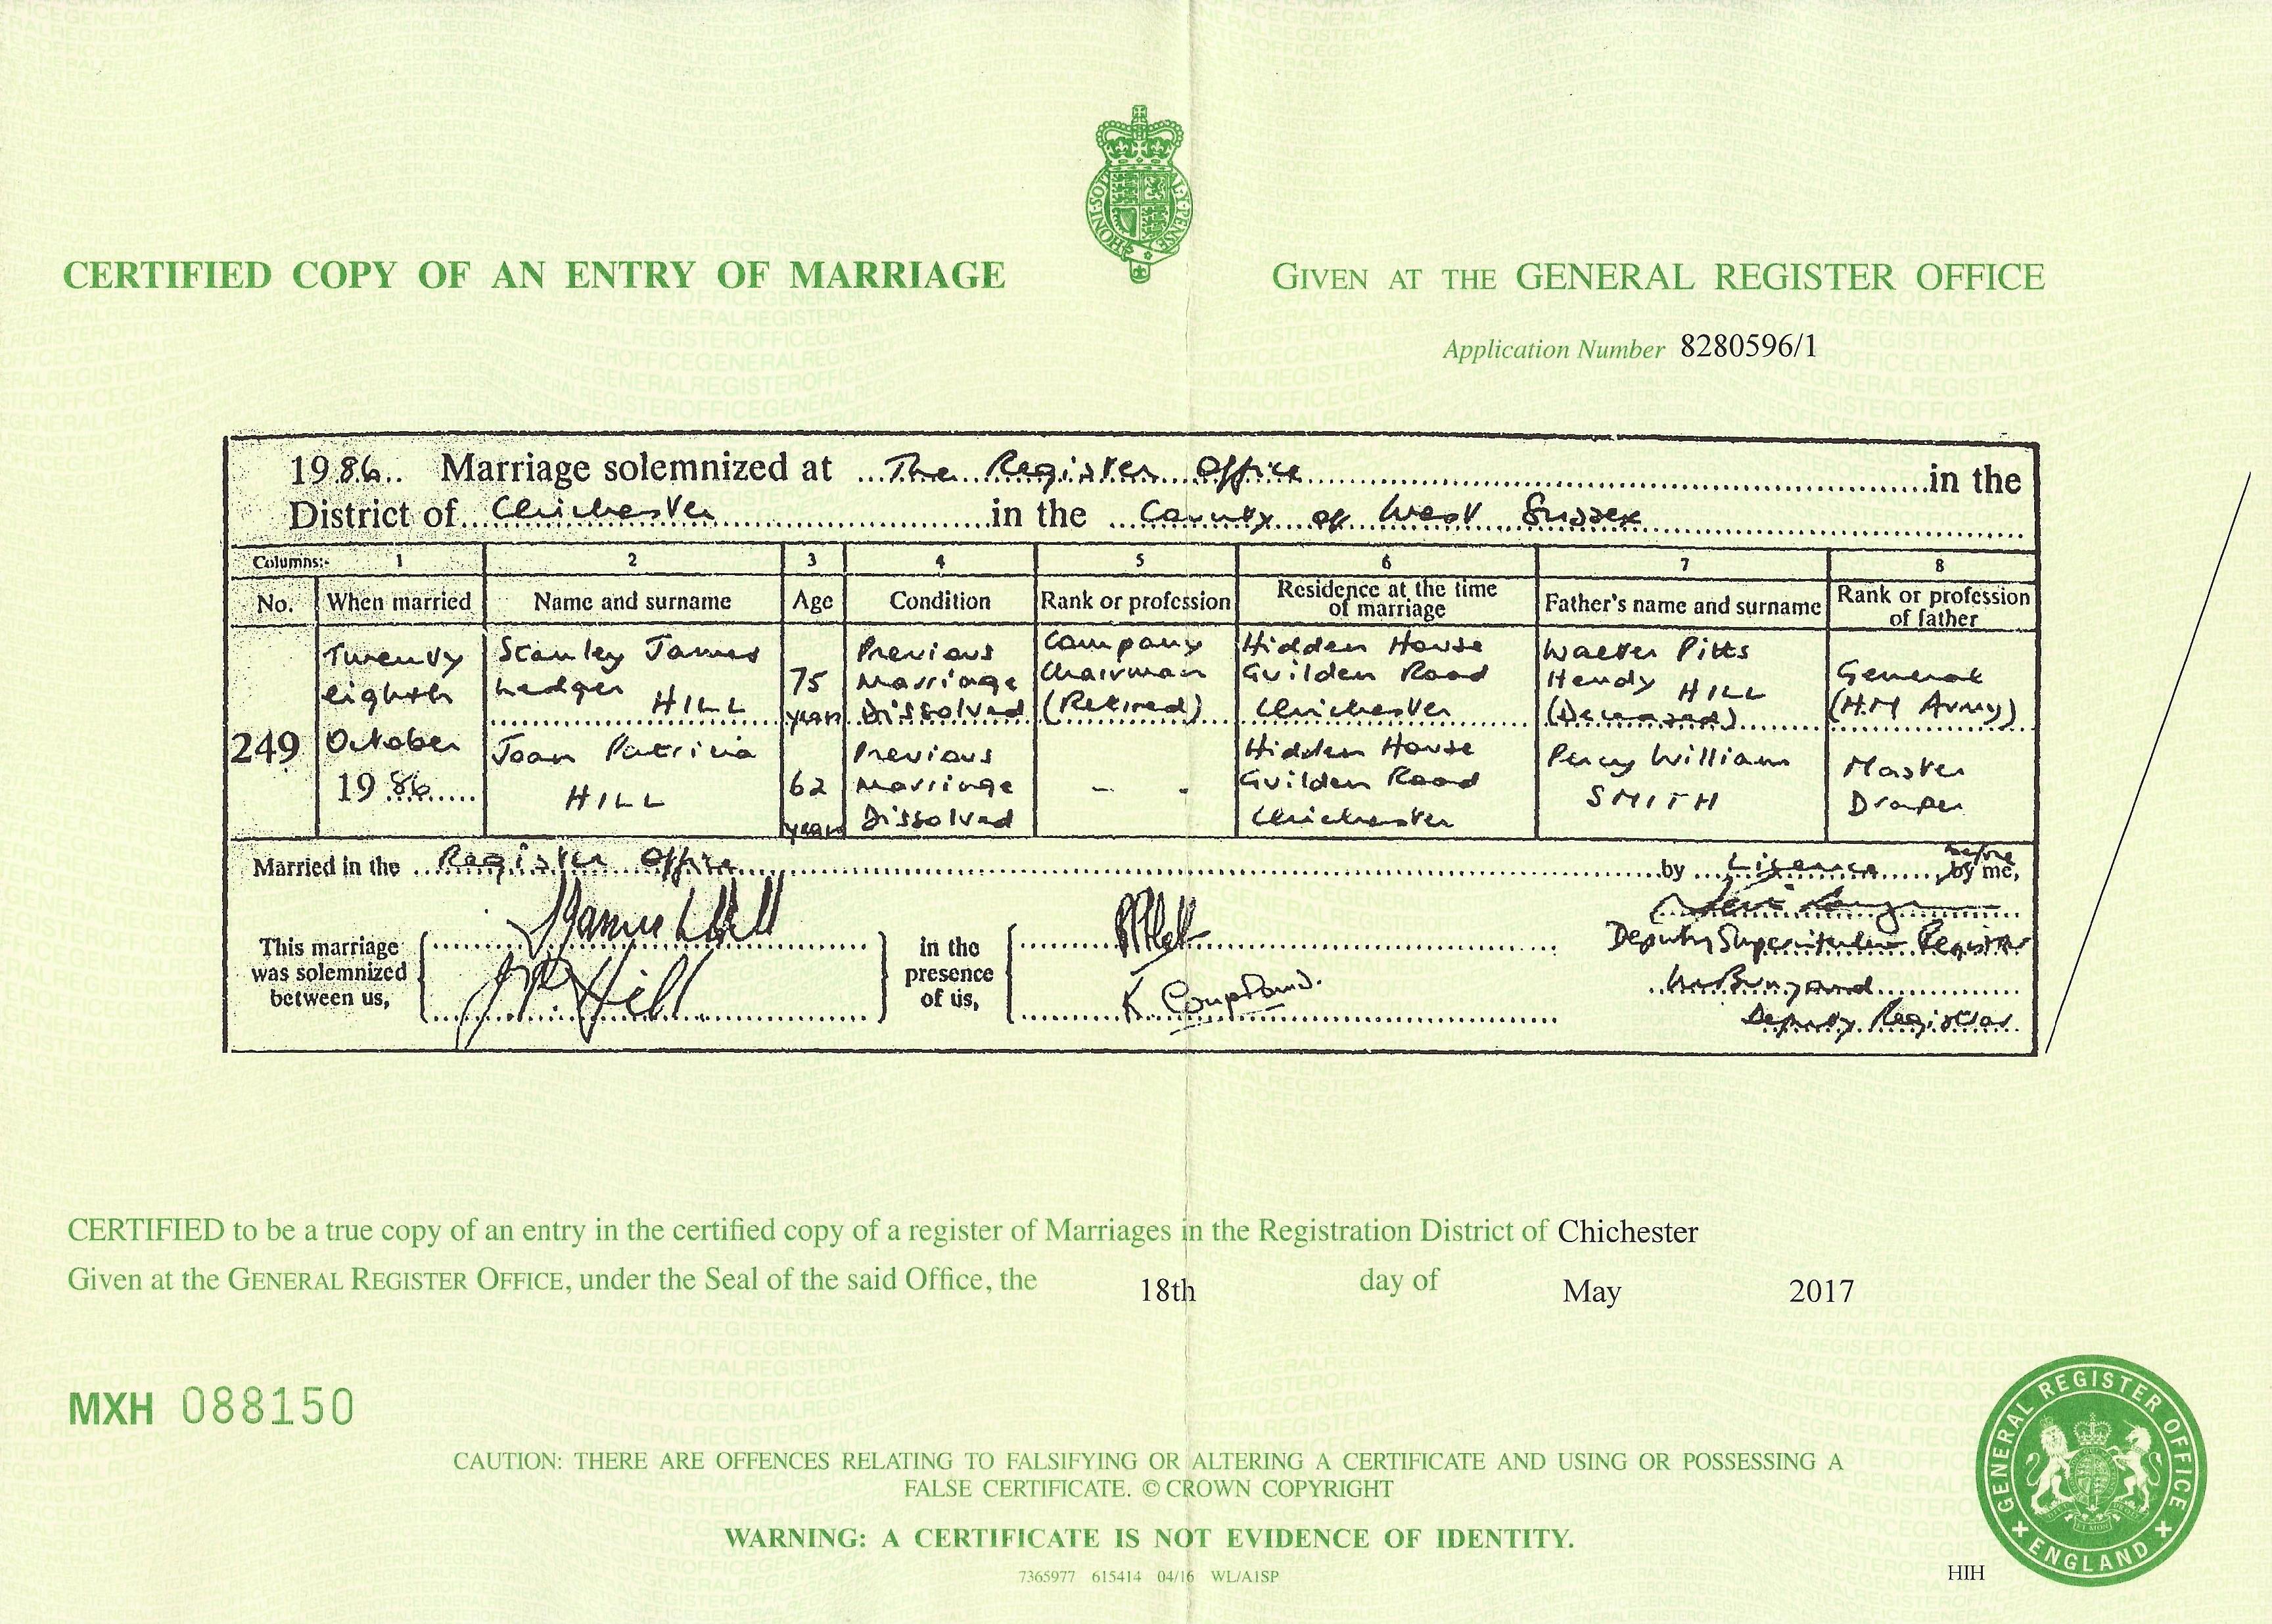 HONI·SOIT Y·PENSE
CERTIFIED COPY OF AN ENTRY OF MARRIAGE
GIVEN AT THE GENERAL REGISTER OFFICE
Application Number 8280596/1
1986 Marriage solemnized at The Register Office in the
District of Chichester in the County of West Sussex
Columns:- 1 2 3 4 5 6 7 8
No. When married Name and surname Age Condition Rank or profession Residence at the time of marriage Father's name and surname Rank or profession of father
249
Twenty
eighth
October
1986
Stanley James
Ledger HILL
75
years
Previous
Marriage
Dissolved
Company
Chairman
(Retired)
Hidden House
Guilden Road
Chichester
Walter Pitts
Hendy HILL
(Deceased)
General
(H.M Army)
Joan Patricia
HILL
62
years
Previous
Marriage
Dissolved
- -
Hidden House
Guilden Road
Chichester
Percy William
SMITH
Master
Draper
Married in the Register Office by Licence before by me,
This marriage
was solemnized
between us,
J.P. Hill
in the
presence
of us,
K Coupland.
Deputy Superintendent Registrar
Deputy Registrar
CERTIFIED to be a true copy of an entry in the certified copy of a register of Marriages in the Registration District of Chichester
Given at the GENERAL REGISTER OFFICE, under the Seal of the said Office, the 18th day of May 2017
MXH 088150
CAUTION: THERE ARE OFFENCES RELATING TO FALSIFYING OR ALTERING A CERTIFICATE AND USING OR POSSESSING A
FALSE CERTIFICATE. © CROWN COPYRIGHT
WARNING: A CERTIFICATE IS NOT EVIDENCE OF IDENTITY.
7365977 615414 04/16 WL/A1SP
HIH
GENERAL REGISTER OFFICE
ENGLAND